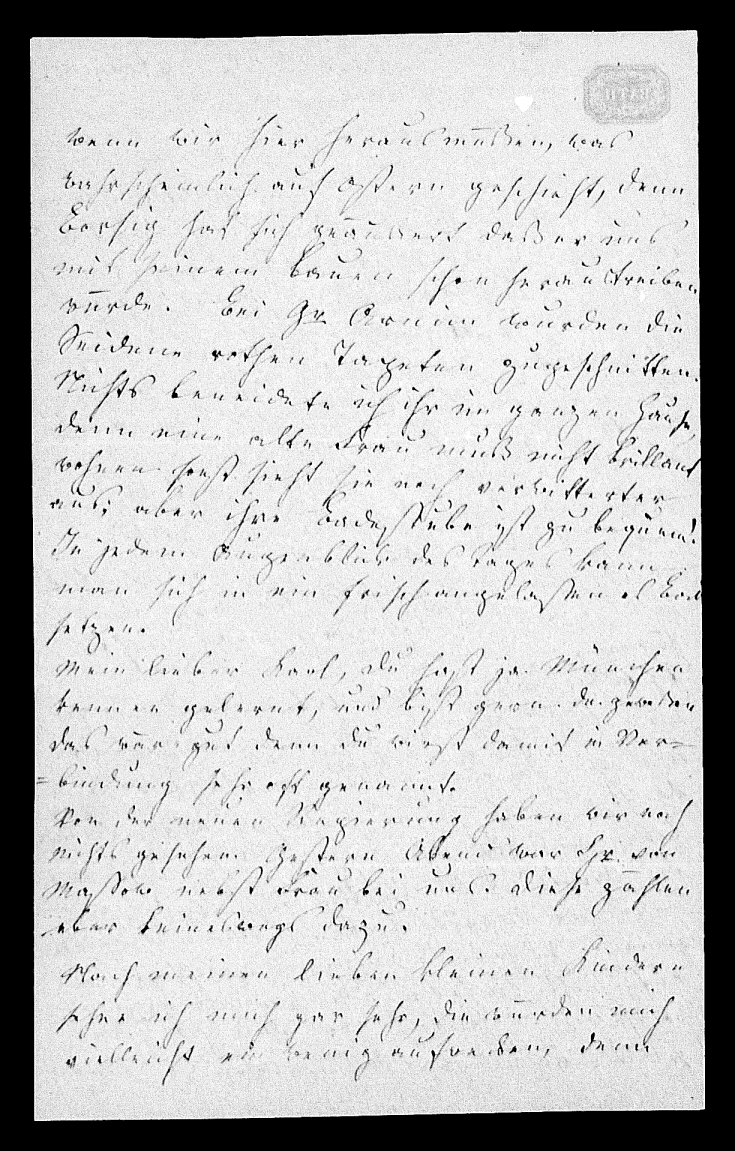 wenn wir hier herausmüßen, was
wahrscheinlich auf Ostern geschieht, denn
Borsig hat sich geäussert daß er uns
mit seinem Bauen schon heraustreiben
würde. Bei Gr Arnim wurden die
Seidene rothen Tapeten zugeschnitten.
Nichts beneidete ich ihr im ganzen Hause,
denn eine alte Frau muß nicht brillant
wohnen sonst sieht sie noch verwitterter
aus; aber ihre Badestube ist zu bequem!
In jedem Augenblick des Tages kann
man sich in ein frisch angelaßenes Bad
setzen.
Mein lieber Karl, Du hast ja München
kennen gelernt, und bist gern da gewesen
das war gut denn Du wirst damit in Ver=
=bindung sehr oft genannt.
Von der neuen Regierung haben wir noch
nichts gesehen. Gestern Abend war Hr. von
Massow nebst Frau bei uns. Diese zählen
aber keineswegs dazu.
Nach meinen lieben kleinen Kindern
sehne ich mich gar sehr, die würden mich
vielleicht ein wenig aufwecken, denn